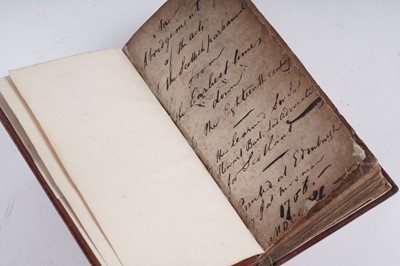 An
Abridgement
of the acts
of the Scottish parliament
from
the Earliest times
down
to the Eighteenth century
by the learned Sir Ja
Stewart
for Scotland
Printed at Edinburgh
by
1708